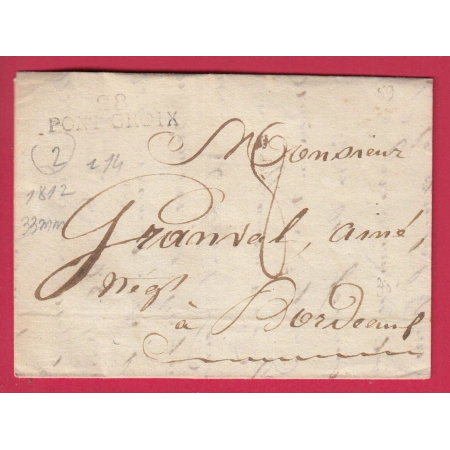 28
PONT-CROIX
2
214
1812
33mm
Monsieur
Granval, ainé,
Négt
à Bordeaux